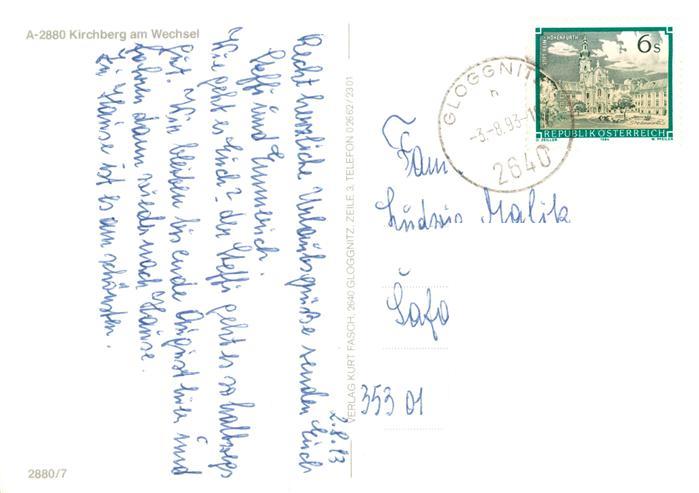 A-2880 Kirchberg am Wechsel
2.8.93
Recht herzliche Urlaubsgrüße senden Euch
Steffi und Emmerich.
Wie geht es Euch? den Steffi geht es so halbwegs
gut. Wir bleiben bis ende August hier und
fahren dann wieder nach Hause.
Zu Hause ist es am schönsten.
2880/7
VERLAG KURT FASCH, 2640 GLOGGNITZ, ZEILE 3, TELEFON 02662/2301
STIFT REIN-HOHENFURTH
6s
REPUBLIK ÖSTERREICH
O. ZEILLER 1984 W. PFEILER
GLOGGNITZ
n
-3.-8.93-
2640
Fam.
Ľudvis Malik
Šafo
353 01